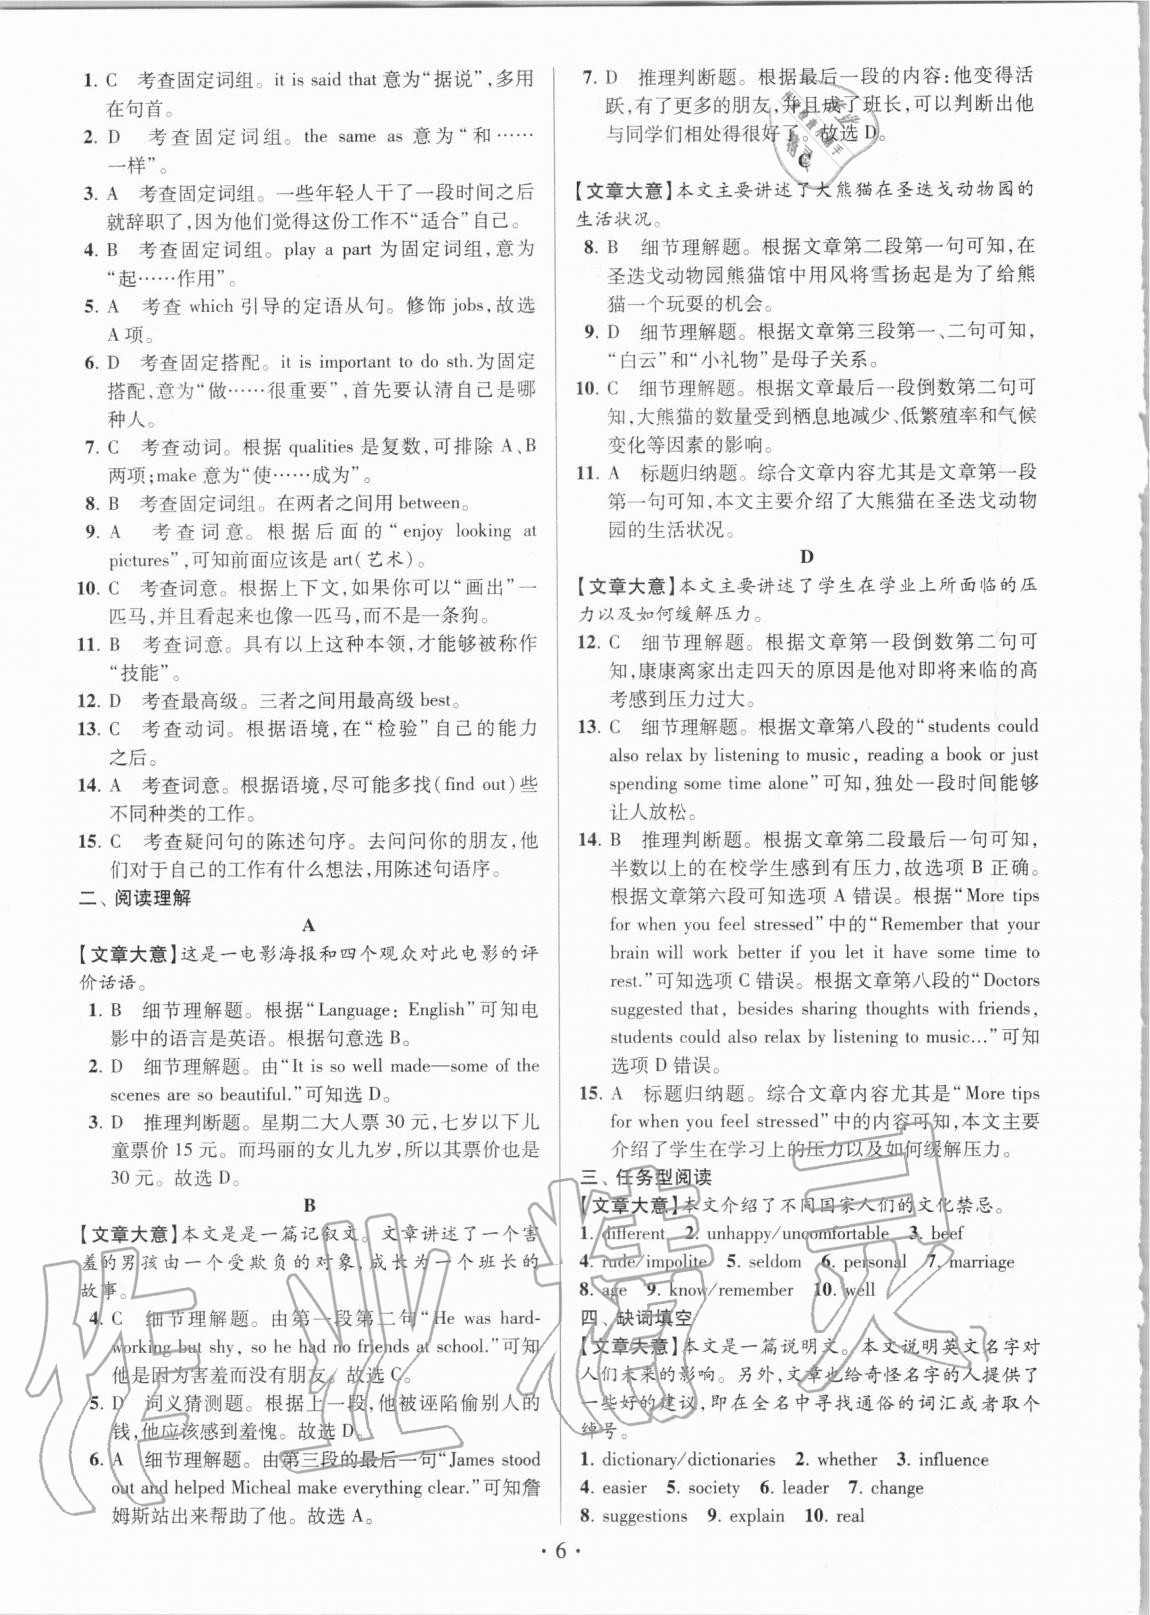 1. C 考查固定词组。it is said that 意为“据说”,多用
在句首。
2. D 考查固定词组。the same as 意为“和……
一样”。
3. A 考查固定词组。一些年轻人干了一段时间之后
就辞职了,因为他们觉得这份工作不“适合”自己。
4. B 考查固定词组。play a part 为固定词组,意为
“起……作用”。
5. A 考查 which 引导的定语从句。修饰 jobs,故选
A 项。
6. D 考查固定搭配。it is important to do sth.为固定
搭配,意为“做……很重要”,首先要认清自己是哪
种人。
7. C 考查动词。根据 qualities 是复数,可排除 A、B
两项;make 意为“使……成为”。
8. B 考查固定词组。在两者之间用 between。
9. A 考查词意。根据后面的“enjoy looking at
pictures”,可知前面应该是 art(艺术)。
10. C 考查词意。根据上下文,如果你可以“画出”一
匹马,并且看起来也像一匹马,而不是一条狗。
11. B 考查词意。具有以上这种本领,才能够被称作
“技能”。
12. D 考查最高级。三者之间用最高级 best。
13. C 考查动词。根据语境,在“检验”自己的能力
之后。
14. A 考查词意。根据语境,尽可能多找(find out)些
不同种类的工作。
15. C 考查疑问句的陈述句序。去问问你的朋友,他
们对于自己的工作有什么想法,用陈述句语序。
二、阅读理解
A
【文章大意】这是一电影海报和四个观众对此电影的评
价话语。
1. B 细节理解题。根据“Language: English”可知电
影中的语言是英语。根据句意选 B。
2. D 细节理解题。由“It is so well made—some of the
scenes are so beautiful.”可知选 D。
3. D 推理判断题。星期二大人票 30 元,七岁以下儿
童票价 15 元。而玛丽的女儿九岁,所以其票价也是
30 元。故选 D。
B
【文章大意】本文是是一篇记叙文。文章讲述了一个害
羞的男孩由一个受欺负的对象,成长为一个班长的
故事。
4. C 细节理解题。由第一段第二句“He was hard-
working but shy, so he had no friends at school.”可知
他因为害羞而没有朋友。故选 C。
5. D 词义猜测题。根据上一段,他被诬陷偷别人的
钱,他应该感到羞愧。故选 D。
6. A 细节理解题。由第三段的最后一句“James stood
out and helped Micheal make everything clear.”可知詹
姆斯站出来帮助了他。故选 A。
7. D 推理判断题。根据最后一段的内容:他变得活
跃,有了更多的朋友,并且成了班长,可以判断出他
与同学们相处得很好了。故选 D。
C
【文章大意】本文主要讲述了大熊猫在圣迭戈动物园的
生活状况。
8. B 细节理解题。根据文章第二段第一句可知,在
圣迭戈动物园熊猫馆中用风将雪扬起是为了给熊
猫一个玩耍的机会。
9. D 细节理解题。根据文章第三段第一、二句可知,
“白云”和“小礼物”是母子关系。
10. C 细节理解题。根据文章最后一段倒数第二句可
知,大熊猫的数量受到栖息地减少、低繁殖率和气候
变化等因素的影响。
11. A 标题归纳题。综合文章内容尤其是文章第一段
第一句可知,本文主要介绍了大熊猫在圣迭戈动物
园的生活状况。
D
【文章大意】本文主要讲述了学生在学业上所面临的压
力以及如何缓解压力。
12. C 细节理解题。根据文章第一段倒数第二句可
知,康康离家出走四天的原因是他对即将来临的高
考感到压力过大。
13. C 细节理解题。根据文章第八段的“students could
also relax by listening to music, reading a book or just
spending some time alone”可知,独处一段时间能够
让人放松。
14. B 推理判断题。根据文章第二段最后一句可知,
半数以上的在校学生感到有压力,故选项 B 正确。
根据文章第六段可知选项 A 错误。根据“More tips
for when you feel stressed”中的“Remember that your
brain will work better if you let it have some time to
rest.”可知选项 C 错误。根据文章第八段的“Doctors
suggested that, besides sharing thoughts with friends,
students could also relax by listening to music...”可知
选项 D 错误。
15. A 标题归纳题。综合文章内容尤其是“More tips
for when you feel stressed”中的内容可知,本文主要
介绍了学生在学习上的压力以及如何缓解压力。
三、任务型阅读
【文章大意】本文介绍了不同国家人们的文化禁忌。
1. different 2. unhappy/uncomfortable 3. beef
4. rude/impolite 5. seldom 6. personal 7. marriage
8. age 9. know/remember 10. well
四、缺词填空
【文章大意】本文是一篇说明文。本文说明英文名字对
人们未来的影响。另外,文章也给奇怪名字的人提供了
一些好的建议,即在全名中寻找通俗的词汇或者取个
绰号。
1. dictionary/dictionaries 2. whether 3. influence
4. easier 5. society 6. leader 7. change
8. suggestions 9. explain 10. real
• 6 •
作业精灵